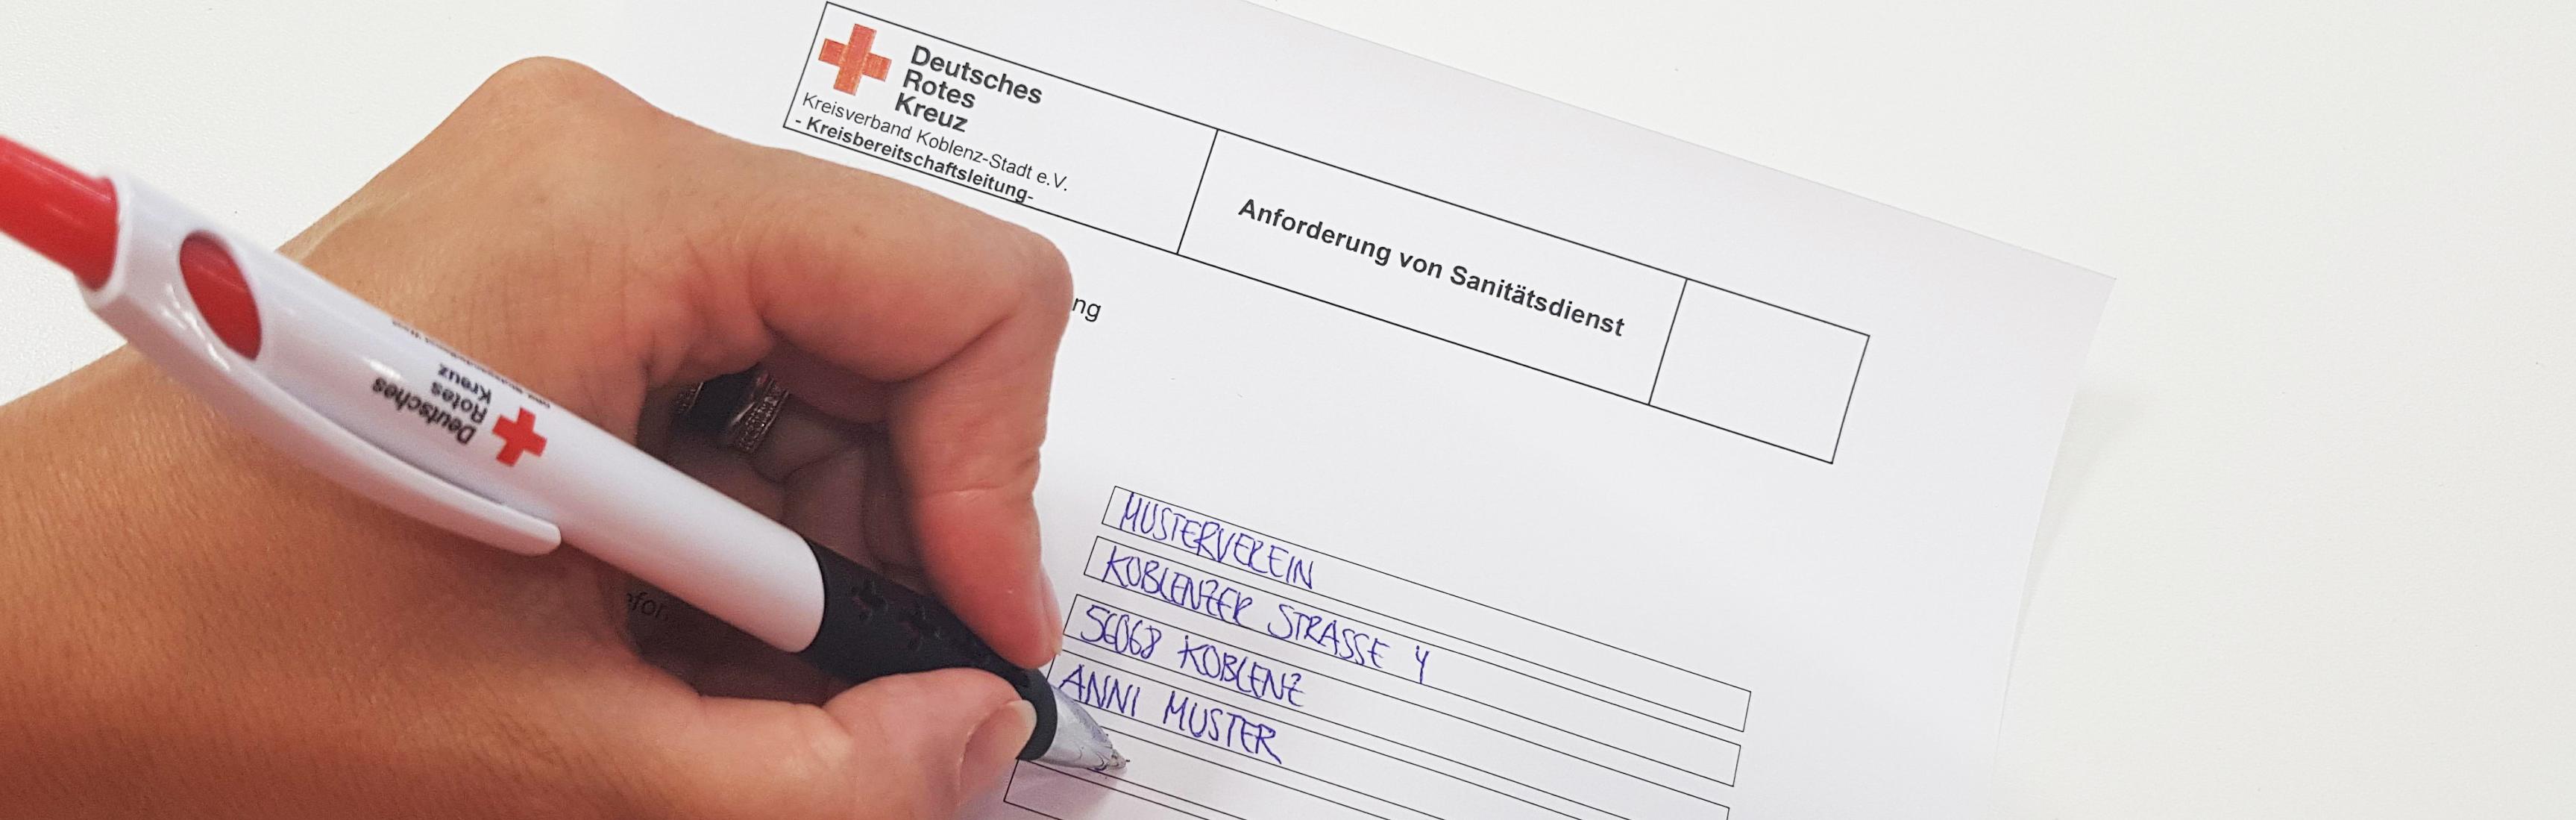 Deutsches
Rotes
Kreuz
Kreisverband Koblenz-Stadt e.V.
- Kreisbereitschaftsleitung-
Anforderung von Sanitätsdienst
ng
MUSTERVEREIN
KOBLENZER STRASSE 4
56068 KOBLENZ
ANNI MUSTER
efon
Deutsches
Rotes
Kreuz